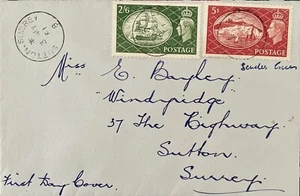 SUTTON, SURREY
2/6 POSTAGE
5s POSTAGE
Miss E. Bayley
"Windyridge"
37 The Highway.
Sutton
Surrey.
First Day Cover.